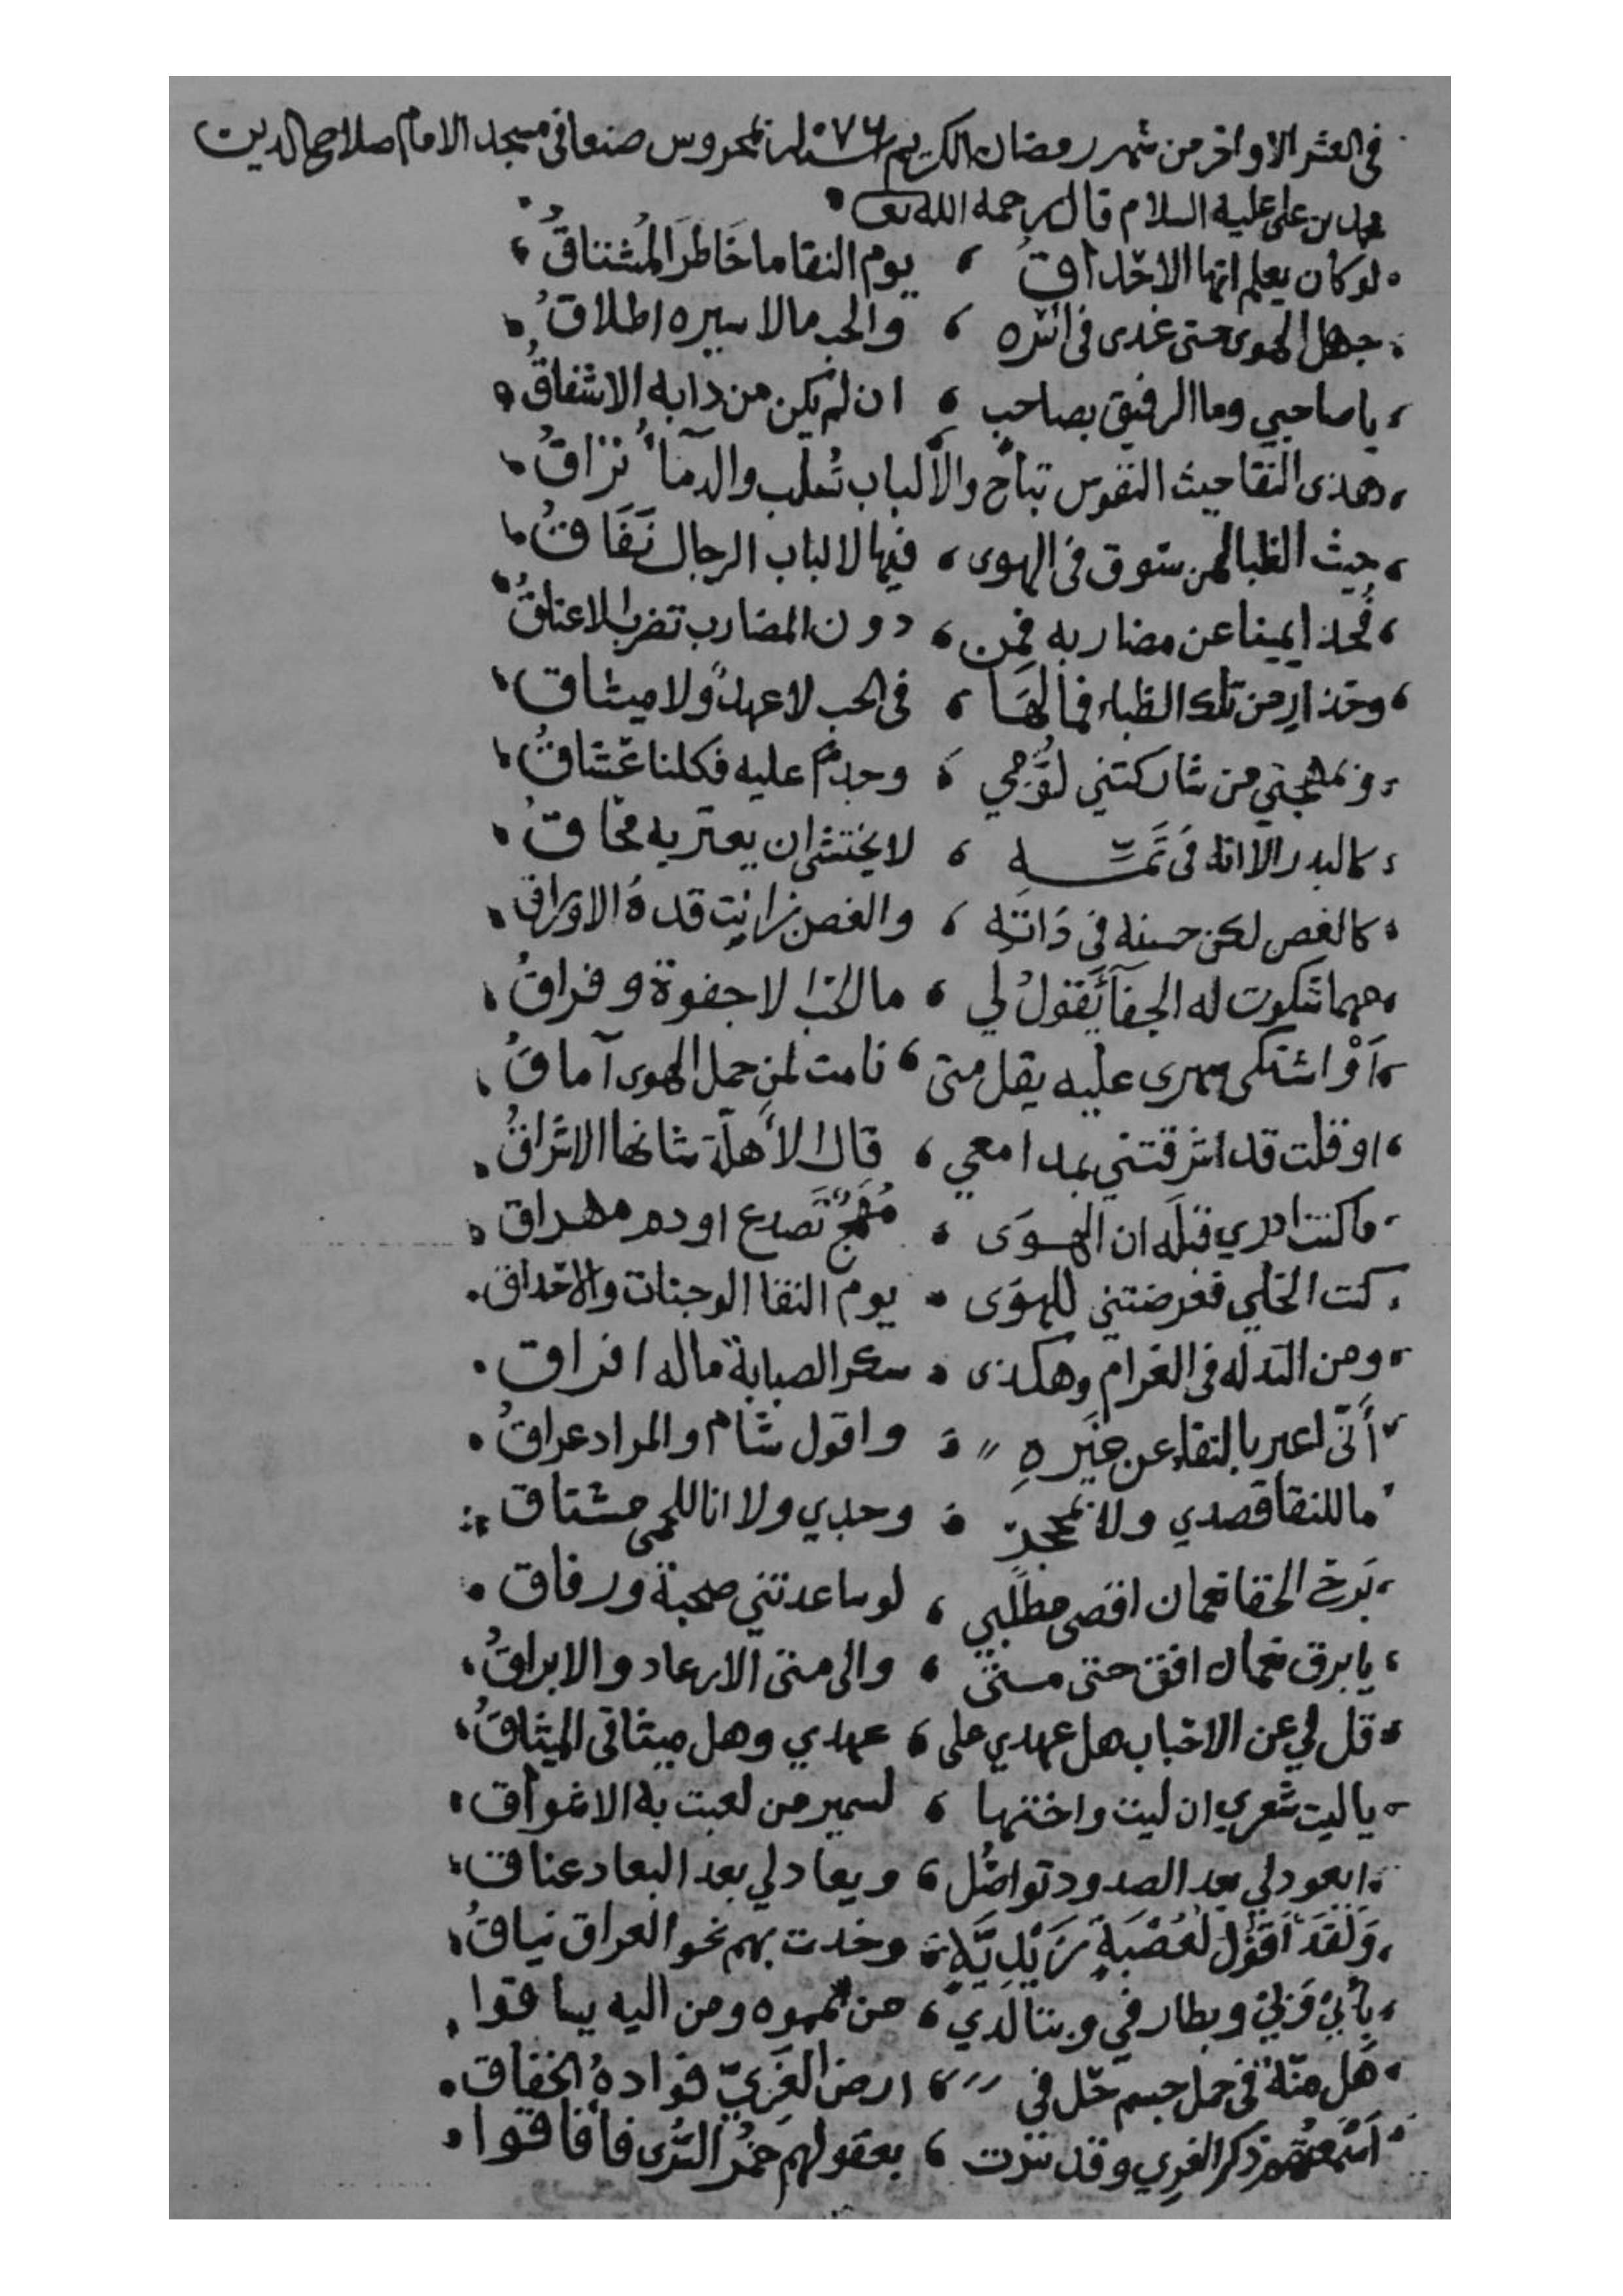 في العشر الاواخر من شهر رمضان الكريم سنة ١٠٧٦ بمحروس صنعا في مسجد الامام صلاح الدين
محمد بن علي عليه السلام قال رحمه الله تعالى
لو كان يعلم انها الاحداقُ ، يوم النقا ما خَاطرَ المُشتاقُ
جهل الهوى حتى غدى في اسره ، والحب ما لاسيره اطلاقُ
يا صاحبي وما الرفيق بصاحب ، ان لم يكن من دابه الاشفاقُ
هذى النقا حيث النفوس تباح والألباب تسلب والدمآءُ تراقُ
حيث الظبا لهن سوق في الهوى ، فيها لالباب الرجال نَفَاقُ
فخذ ايمينا عن مضاربه فمن ، دون المضارب تضرب الاعناقُ
وحذار من تلك الظباء فما لهَا ، في الحب لا عهدٌ ولا ميثاق
وبمهجتي من شاركتني لُوَّمي ، وجدٌ عليه فكلنا عُشاقُ
كالبدر الا انه في تَمِّه ، لا يختشي ان يعتريه محاقُ
كالغصن لكن حسنه في ذاته ، والغصن زانت قدهُ الاوراق
مهما شكوت له الجفآءَ يقولُ لي ، ما الحب الا جفوة وفراقُ
أو اشتكى سهري عليه يقل متى ، نامت لمن حمل الهوى آماقُ
او قلت قد اشرقتني بمدامعي ، قال الأهلّة شانها الاشراقُ
ما كنت ادري قبلَه ان الهوَى ، مُهَجٌ تَصدع او دم مهراق
كنت الخلي فعرضتني للهوَى ، يوم النقا الوجنات والاحداق
ومن التدله في الغرام وهكذى ، سكر الصبابة ماله افراق
أنّى اعبر بالنقاء عن غيره ، واقول شام والمراد عراقُ
ما للنقا قصدي ولا بمحجرٍ ، وجدي ولا انا للحمى مشتاق
برق نعمان اقصى مطلبي ، لو ساعدتني صحبة ورفاق
يا برق نعمان افق حتى متى ، والى متى الارعاد والابراقُ
قل لي عن الاحباب هل عهدي على ، عهدي وهل ميثاقي الميثاقُ
يا ليت شعري ان ليت واختها ، لسمير من لعبت به الاشواق
ايعود لي بعد الصدود تواصُل ، ويعاد لي بعد البعاد عناق
وَلقد أقوْل لعُصْبَةٍ زيْدِيَّةٍ ، وخدت بهم نحو العراق نياقُ
بأبي وبي وبطارفي وبتالدي ، من يمموه ومن اليه يساقوا
هَل منّة في حمل جسم حّل في ، ارض الغَريّ فوادهُ الخفاق
اسمعتهم ذكر الغري وقد سرت ، بعقولهم خمرُ السُّرى فافاقوا